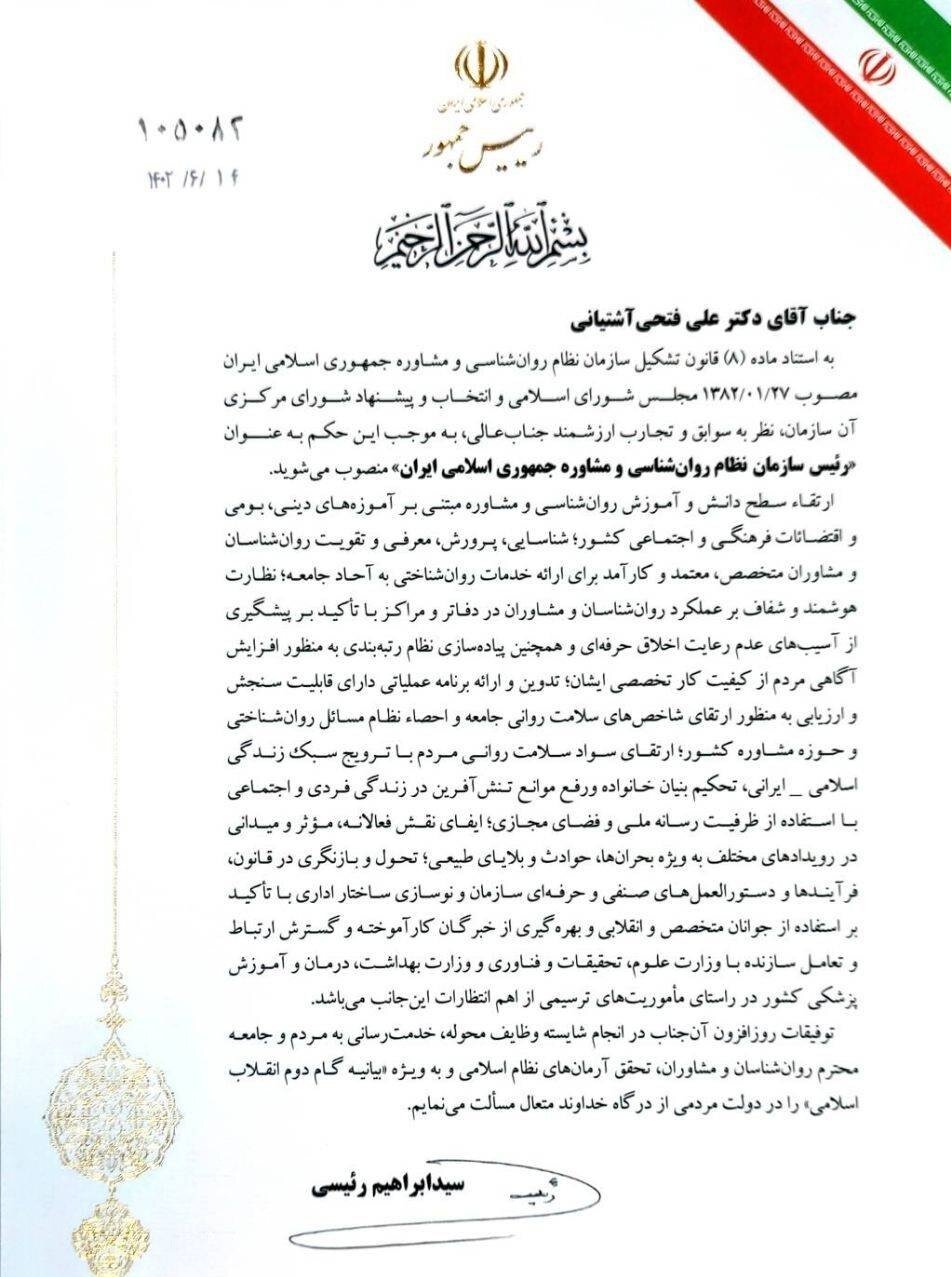 جمهوری اسلامی ایران
رییس جمهور
۱۰۵۰۸۲
۱۴۰۲/۶/۱۴
بسم الله الرحمن الرحیم
جناب آقای دکتر علی فتحی‌آشتیانی
به استناد ماده (۸) قانون تشکیل سازمان نظام روان‌شناسی و مشاوره جمهوری اسلامی ایران
مصوب ۱۳۸۲/۰۱/۲۷ مجلس شورای اسلامی و انتخاب و پیشنهاد شورای مرکزی
آن سازمان، نظر به سوابق و تجارب ارزشمند جناب‌عالی، به موجب این حکم به عنوان
«رئیس سازمان نظام روان‌شناسی و مشاوره جمهوری اسلامی ایران» منصوب می‌شوید.
ارتقاء سطح دانش و آموزش روان‌شناسی و مشاوره مبتنی بر آموزه‌های دینی، بومی
و اقتضائات فرهنگی و اجتماعی کشور؛ شناسایی، پرورش، معرفی و تقویت روان‌شناسان
و مشاوران متخصص، معتمد و کارآمد برای ارائه خدمات روان‌شناختی به آحاد جامعه؛ نظارت
هوشمند و شفاف بر عملکرد روان‌شناسان و مشاوران در دفاتر و مراکز با تأکید بر پیشگیری
از آسیب‌های عدم رعایت اخلاق حرفه‌ای و همچنین پیاده‌سازی نظام رتبه‌بندی به منظور افزایش
آگاهی مردم از کیفیت کار تخصصی ایشان؛ تدوین و ارائه برنامه عملیاتی دارای قابلیت سنجش
و ارزیابی به منظور ارتقای شاخص‌های سلامت روانی جامعه و احصاء نظام مسائل روان‌شناختی
و حوزه مشاوره کشور؛ ارتقای سواد سلامت روانی مردم با ترویج سبک زندگی
اسلامی _ ایرانی، تحکیم بنیان خانواده ورفع موانع تنش‌آفرین در زندگی فردی و اجتماعی
با استفاده از ظرفیت رسانه ملی و فضای مجازی؛ ایفای نقش فعالانه، مؤثر و میدانی
در رویدادهای مختلف به ویژه بحران‌ها، حوادث و بلایای طبیعی؛ تحول و بازنگری در قانون،
فرآیندها و دستورالعمل‌های صنفی و حرفه‌ای سازمان و نوسازی ساختار اداری با تأکید
بر استفاده از جوانان متخصص و انقلابی و بهره‌گیری از خبرگان کارآموخته و گسترش ارتباط
و تعامل سازنده با وزارت علوم، تحقیقات و فناوری و وزارت بهداشت، درمان و آموزش
پزشکی کشور در راستای مأموریت‌های ترسیمی از اهم انتظارات این‌جانب می‌باشد.
توفیقات روزافزون آن‌جناب در انجام شایسته وظایف محوله، خدمت‌رسانی به مردم و جامعه
محترم روان‌شناسان و مشاوران، تحقق آرمان‌های نظام اسلامی و به ویژه «بیانیه گام دوم انقلاب
اسلامی» را در دولت مردمی از درگاه خداوند متعال مسألت می‌نمایم.
سیدابراهیم رئیسی